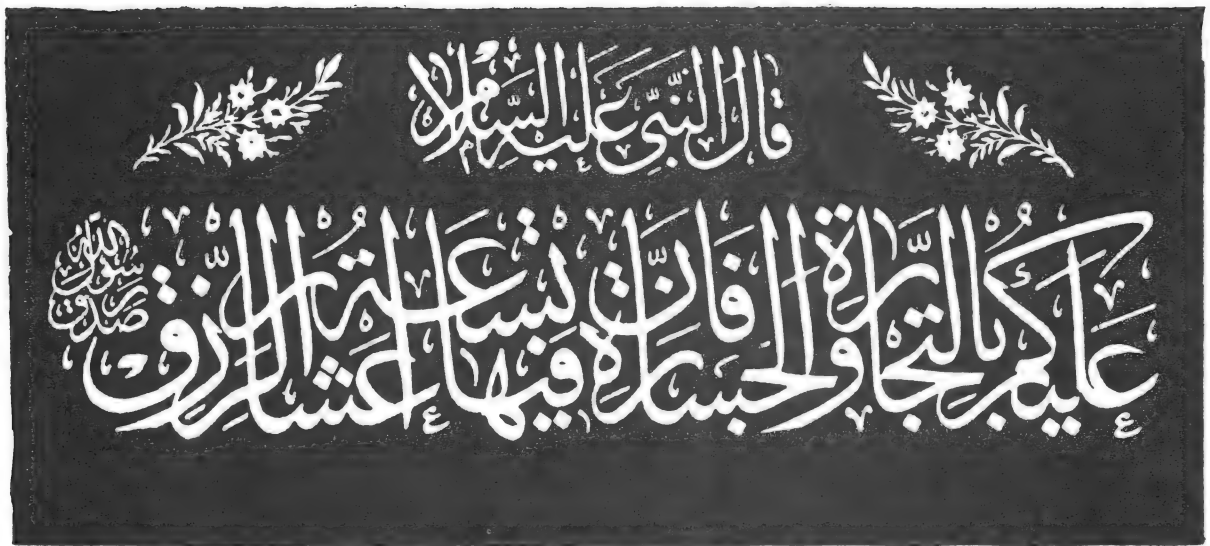 قَالَ النَّبِىُّ عَلَيْهِ السَّلَامُ
عَلَيْكُمْ بِالتِّجَارَةِ وَالْجَسَارَةِ فَاِنَّ فِيهَا تِسْعَةُ اَعْشَارِ الرِّزْقِ
صدق رسول الله